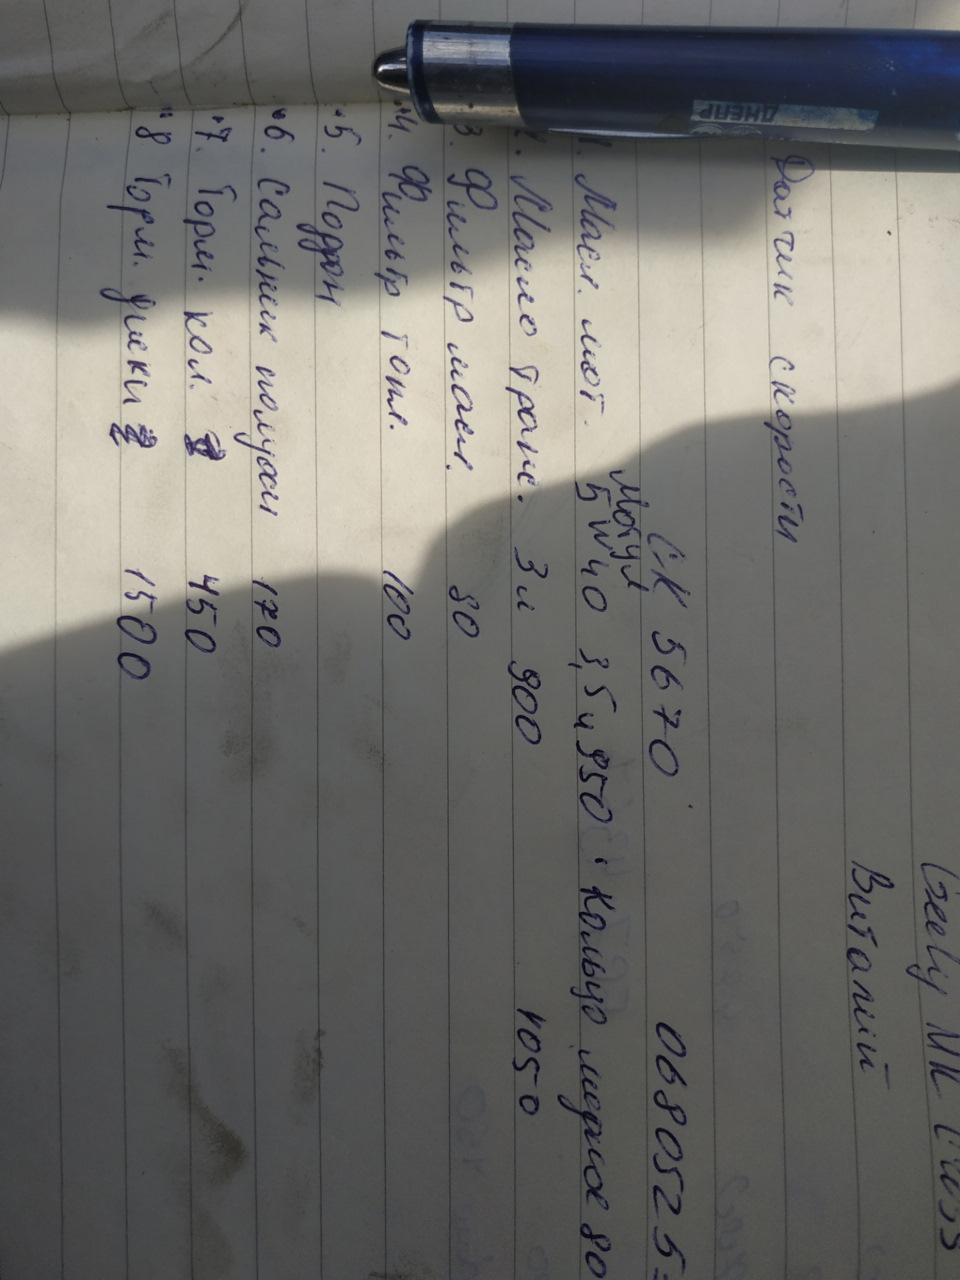 Geely MK Cross
Виталий
Датчик скорости
СК 5670 0680525
Мотул
1. Масл. мот. 5W40 3,5л 950 · Кольцо медное 80
2. Масло транс. 3л 900 1050
3. Фильтр масл. 80
4. Фильтр топл. 100
5. Поддон
6. Сальник полуоси 170
7. Торм. кол. 450
8 Торм. диски 2 1500
ДНЕПР